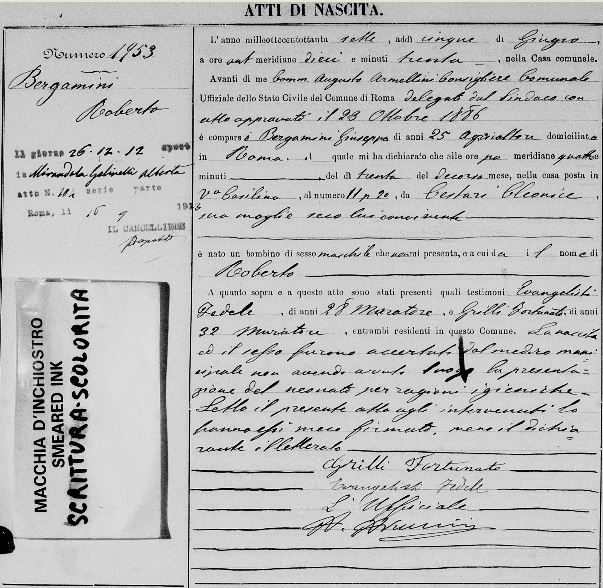 ATTI DI NASCITA.
Numero 1953
Bergamini
Roberto
Il giorno 26-12-12 sposò
in Mirandola Gelinelli Alberta
atto N. serie parte
Roma, li 16 9 1913
IL CANCELLIERE
MACCHIA D'INCHIOSTRO
SMEARED INK
SCRITTURA-SCOLORITA
L'anno milleottocentottanta sette, addì cinque di Giugno,
a ore ant meridiane dieci e minuti trenta, nella Casa comunale.
Avanti di me Comm. Augusto Armellini Consigliere Comunale
Uffiziale dello Stato Civile del Comune di Roma delegato dal Sindaco con
atto approvato il 23 Ottobre 1886
è comparso Bergamini Giuseppe di anni 25 Agricoltore domiciliato
in Roma. il quale mi ha dichiarato che alle ore po meridiane quattro
minuti, del dì trenta del decorso mese, nella casa posta in
Via Casilina, al numero 11 p 20, da Cestari Cleonice,
sua moglie seco lui convivente
è nato un bambino di sesso maschile che non mi presenta, e a cui da il nome di
Roberto
A quanto sopra e a questo atto sono stati presenti quali testimoni Evangelisti
Fedele, di anni 28 Muratore, e Grilli Fortunato, di anni
32 Muratore, entrambi residenti in questo Comune. La nascita
ed il sesso furono accertati dal medico muni
cipale non avendo avuto luogo la presenta-
zione del neonato per ragioni igieniche.
Letto il presente atto agli intervenuti lo
hanno essi meco firmato, meno il dichia-
rante illetterato
Grilli Fortunato
Evangelisti Fedele
L'Ufficiale